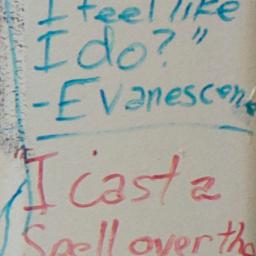 I feel like
I do?"
-Evanescen
"I cast a
Spell over the